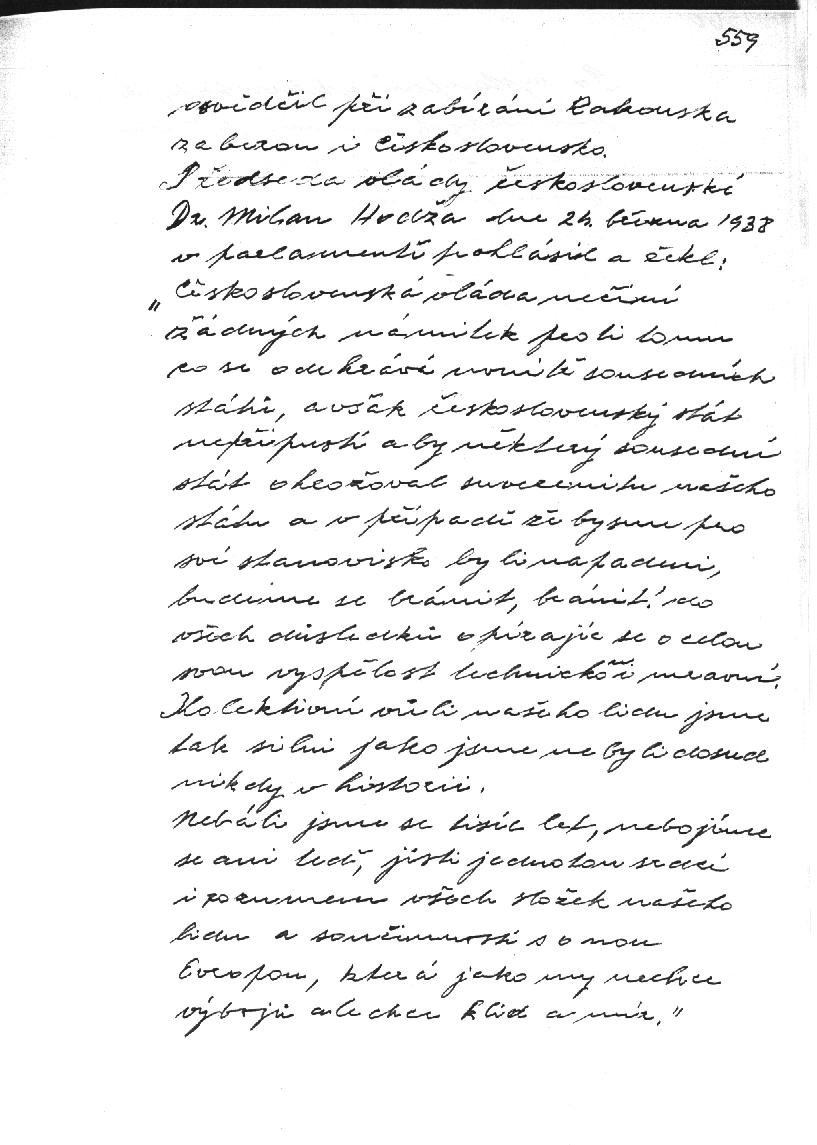 559
osvědčil při zabírání Rakouska
zaberou i Československo.
Předseda vlády československé
Dr. Milan Hodža dne 24. března 1938
v parlamentě prohlásil a řekl:
„Československá vláda nečiní
žádných námitek proti tomu
co se odehrává uvnitř sousedních
států, avšak československý stát
nepřipustí aby některý sousední
stát ohrožoval suverenitu našeho
státu a v případě že bysme pro
své stanovisko byli napadeni,
budeme se bránit, bránit! do
všech důsledků opírajíc se o celou
svou vyspělost technickou i mravní.
Kolektivní vůli našeho lidu jsme
tak silni jako jsme nebyli dosud
nikdy v historii.
Nebáli jsme se tisíc let, nebojíme
se ani teď, jisti jednotou srdcí
i rozumem všech složek našeho
lidu a součinností s onou
Evropou, která jako my nechce
výbojů ale chce klid a mír."